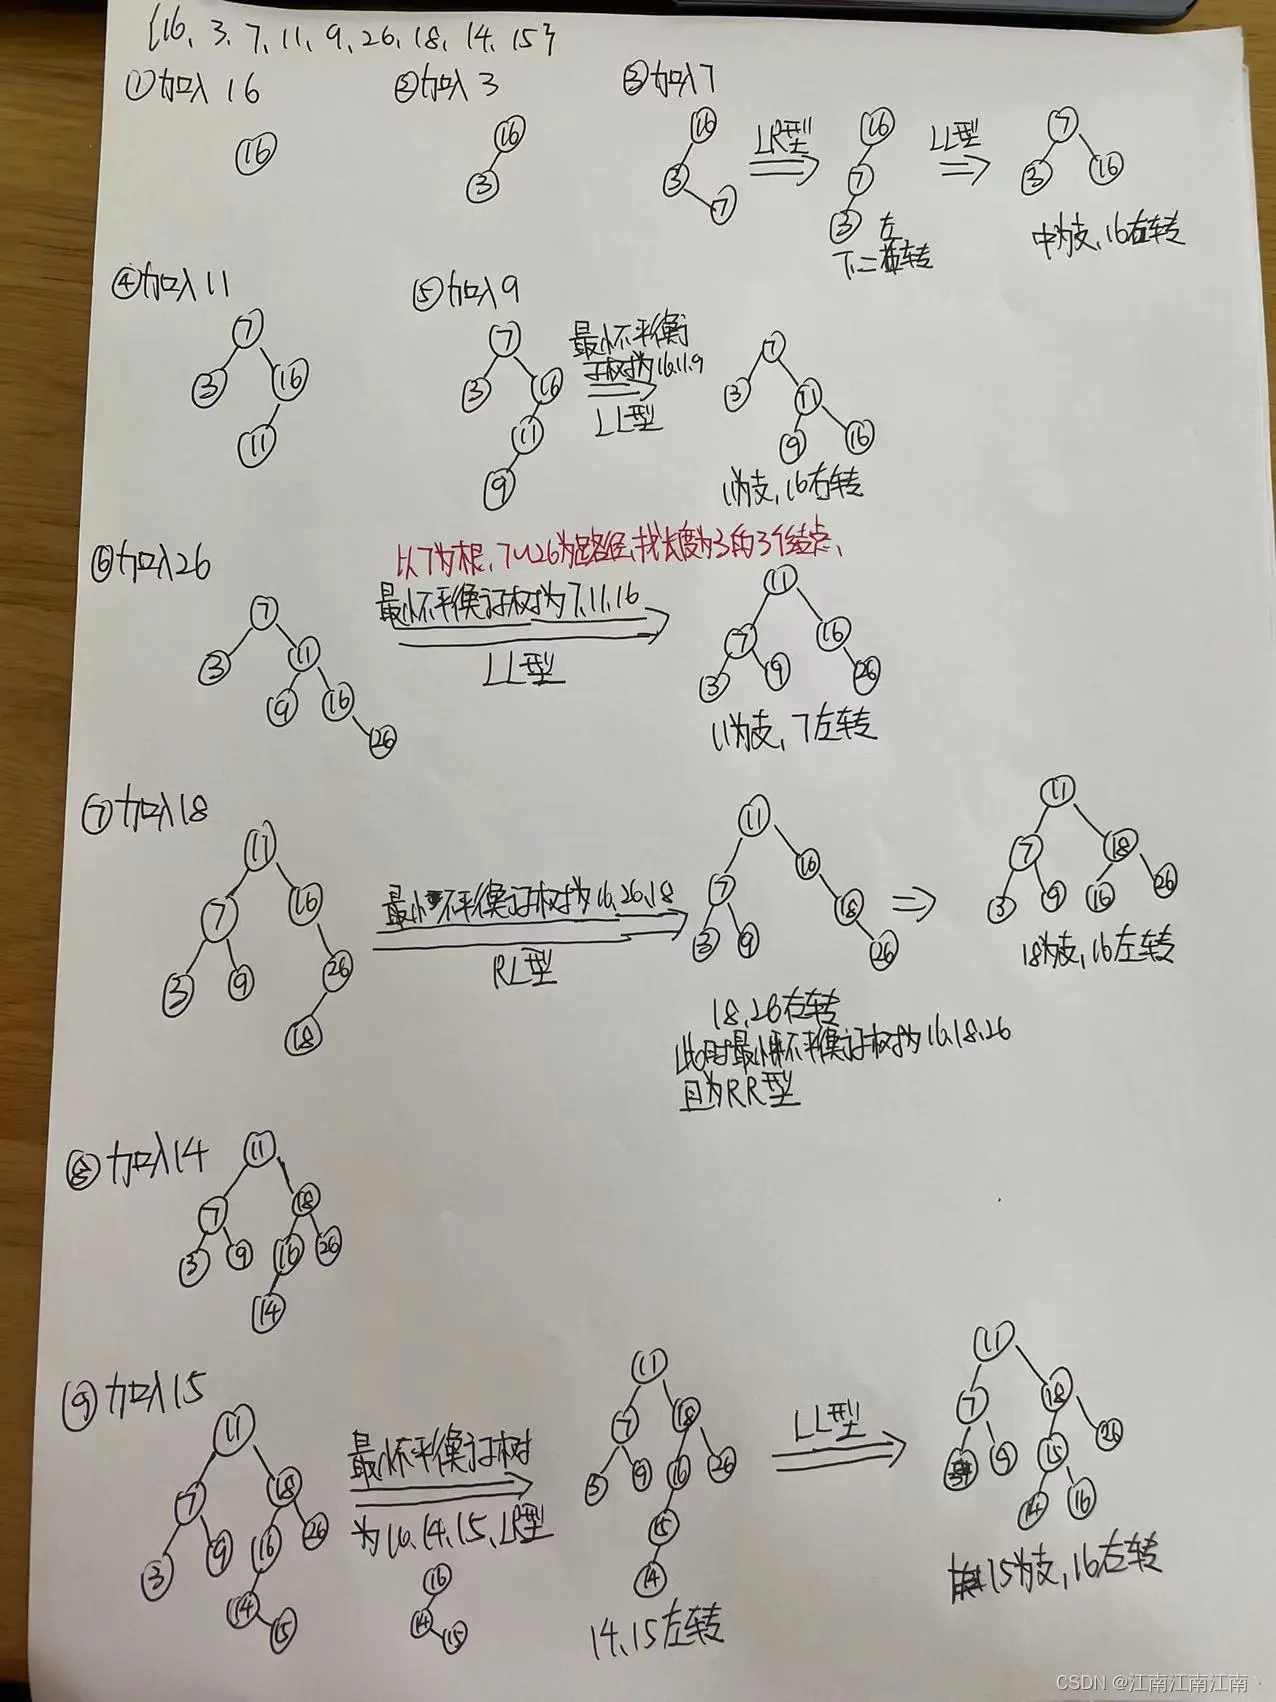 {16、3、7、11、9、26、18、14、15}
①加入16
②加入3
③加入7
16
16
3
16
3
7
LR型
16
7
3
左
下二 转
LL型
7
3
16
中为支，16右转
④加入11
7
3
16
11
⑤加入9
7
3
16
11
9
最小不平衡
子树为16.11.9
LL型
7
3
11
9
16
11为支，16右转
⑥加入26
7
3
11
9
16
26
以7为根，7～26为路径，找长度为3的3个结点、
最小不平衡子树为7.11.16
LL型
11
7
16
3
9
26
11为支，7左转
⑦加入18
11
7
16
3
9
26
18
最小不平衡子树为16.26.18
RL型
11
7
16
3
9
18
26
18、26右转
此时最小不平衡子树为16.18.26
且为RR型
11
7
18
3
9
16
26
18为支，16左转
⑧加入14
11
7
18
3
9
16
26
14
⑨加入15
11
7
18
3
9
16
26
14
15
最小不平衡子树
为16.14.15、LR型
16
14
15
11
7
18
3
9
16
26
15
14
14、15左转
LL型
11
7
18
9
15
26
14
16
15为支，16右转
CSDN @江南江南江南